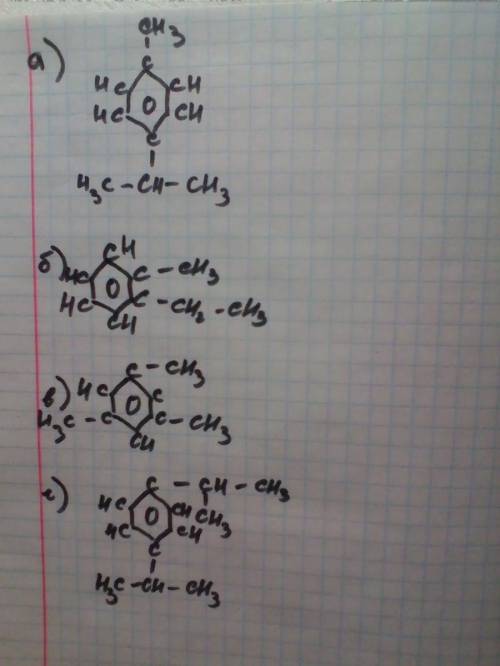 CH3
а) C
HC CH
HC O CH
C
H3C - CH - CH3
б) CH
HC C - CH3
HC O C - CH2 - CH3
CH
в) C - CH3
HC O C
H3C - C C - CH3
CH
г) C - CH - CH3
HC CH CH3
HC O CH
C
H3C - CH - CH3